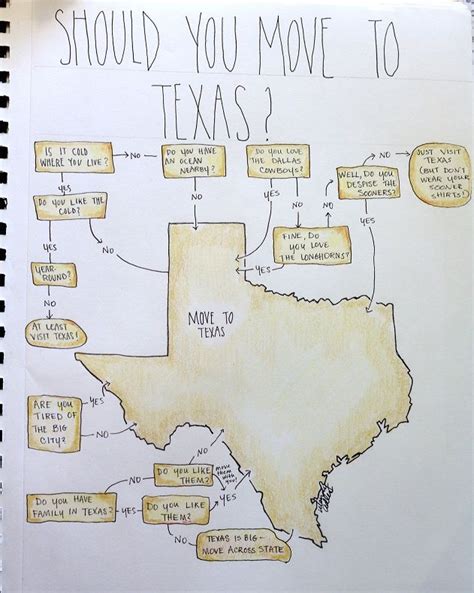 SHOULD YOU MOVE TO
TEXAS?
IS IT COLD
WHERE YOU LIVE?
NO
DO YOU HAVE
AN OCEAN
NEARBY?
DO YOU LOVE
THE DALLAS
COWBOYS?
NO
WELL, DO YOU
DESPISE THE
SOONERS?
JUST VISIT
TEXAS
(BUT DON'T
WEAR YOUR
SOONER
SHIRTS!)
YES
DO YOU LIKE THE
COLD?
NO
NO
YES
NO
NO
YES
FINE, DO
YOU LOVE
THE LONGHORNS?
YES
YES
YEAR-
ROUND?
NO
AT LEAST
VISIT TEXAS!
MOVE TO
TEXAS
ARE YOU
TIRED OF
THE BIG
CITY?
YES
NO
NO
DO YOU LIKE
THEM?
NO
MOVE
THEM
WITH
YOU!
YES
DO YOU HAVE
FAMILY IN TEXAS?
YES
DO YOU LIKE
THEM?
NO
TEXAS IS BIG-
MOVE ACROSS STATE